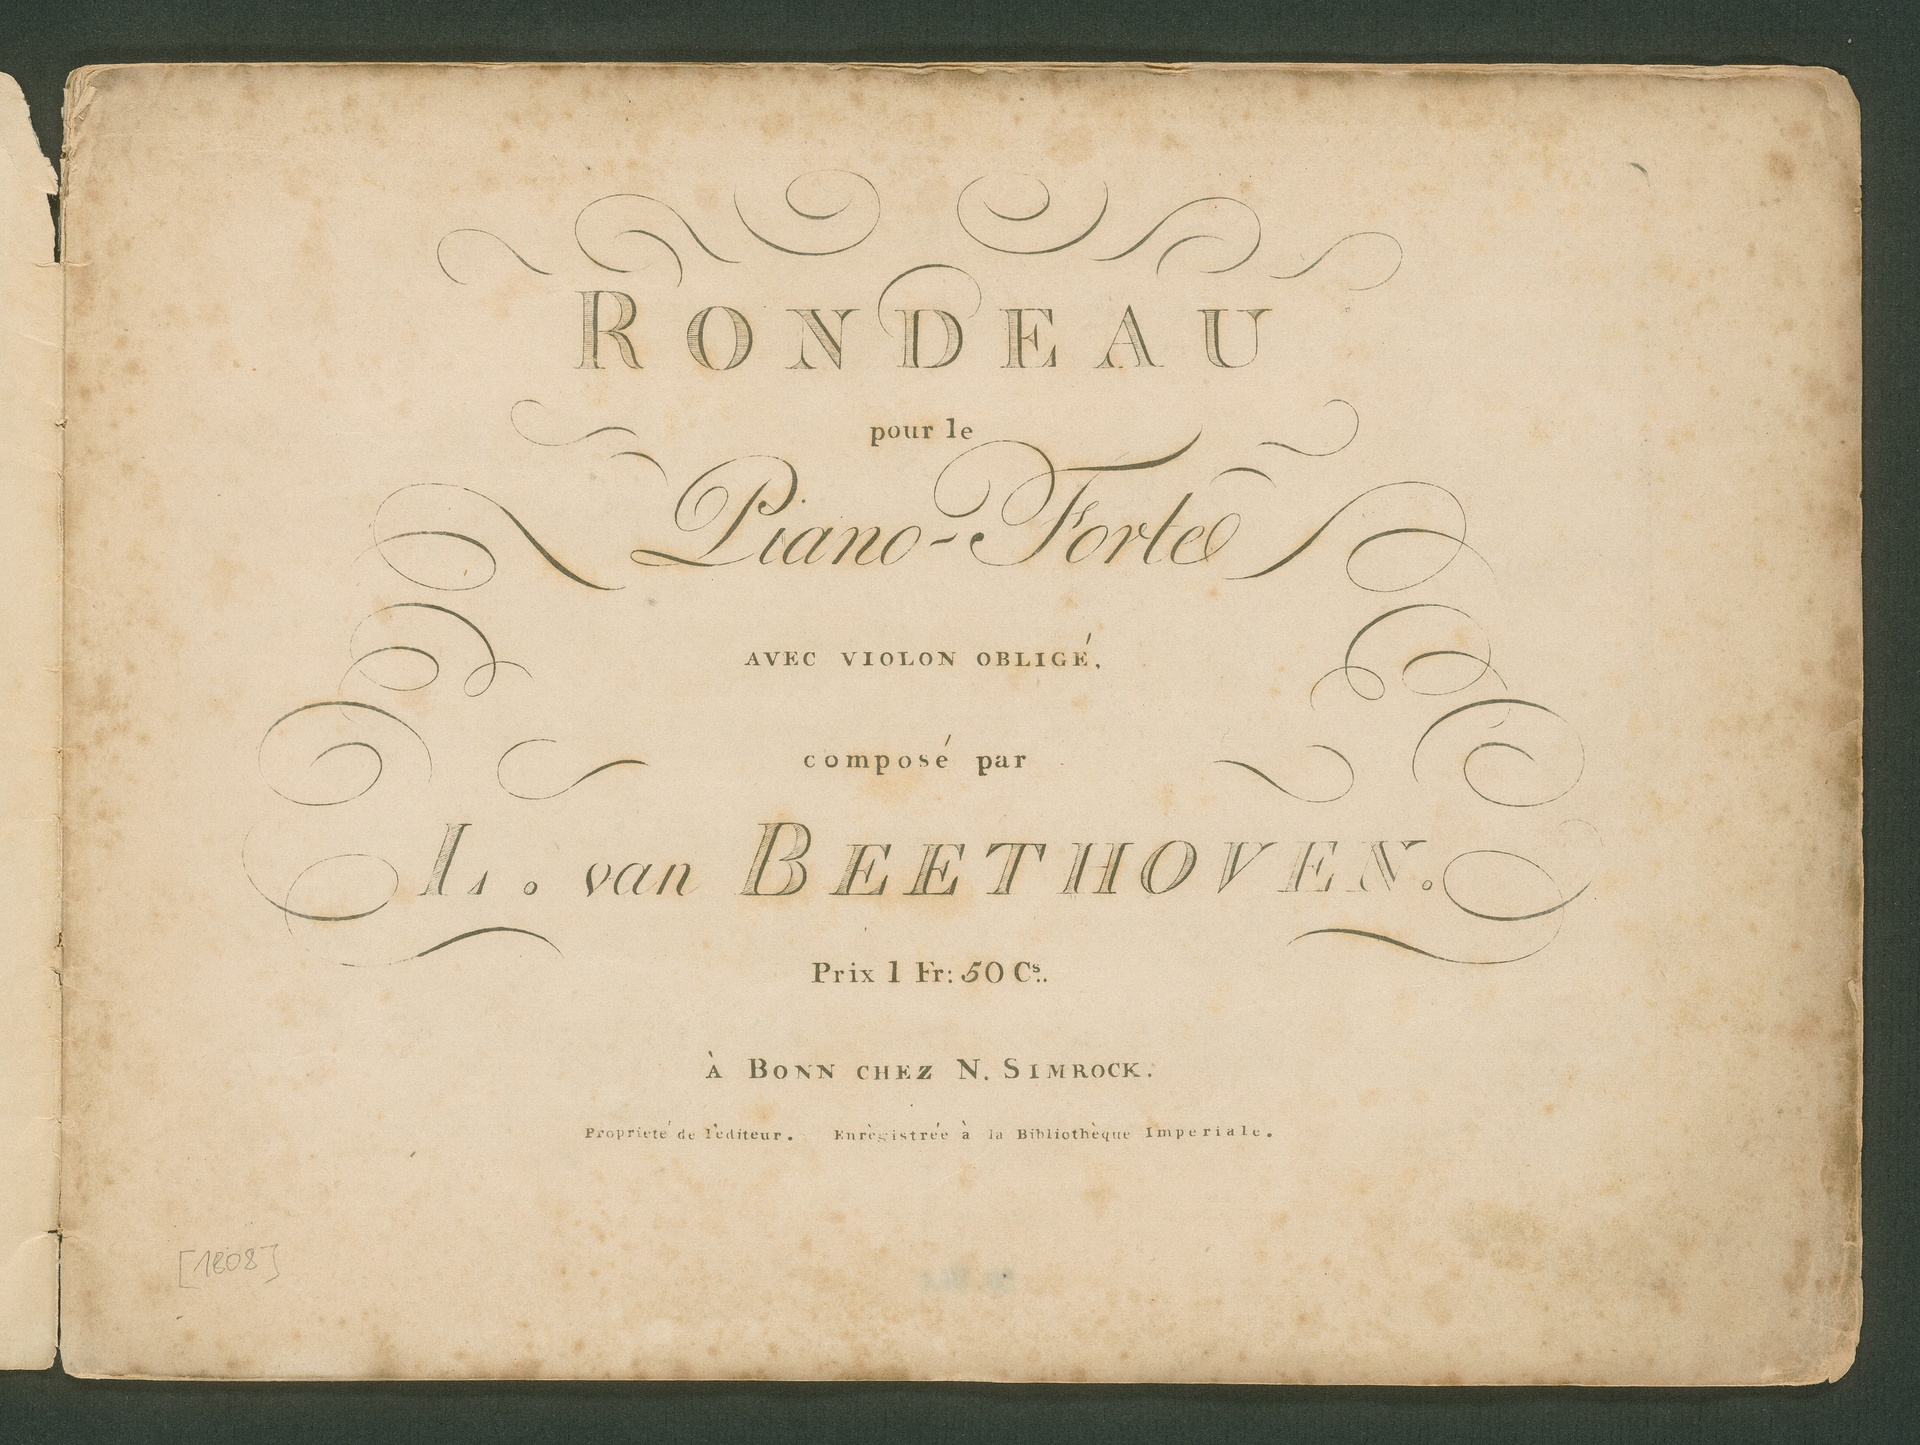 RONDEAU
pour le
Piano-Forte
AVEC VIOLON OBLIGÉ,
composé par
L. van BEETHOVEN.
Prix 1 Fr: 50 Cs.
À BONN CHEZ N. SIMROCK.
Proprieté de l'editeur. Enrègistrée à la Bibliothèque Imperiale.
[1808]